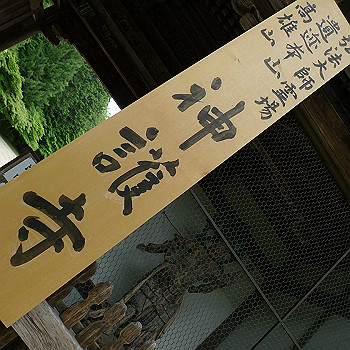 弘法大師霊場
遺迹本山
高雄山
神護寺